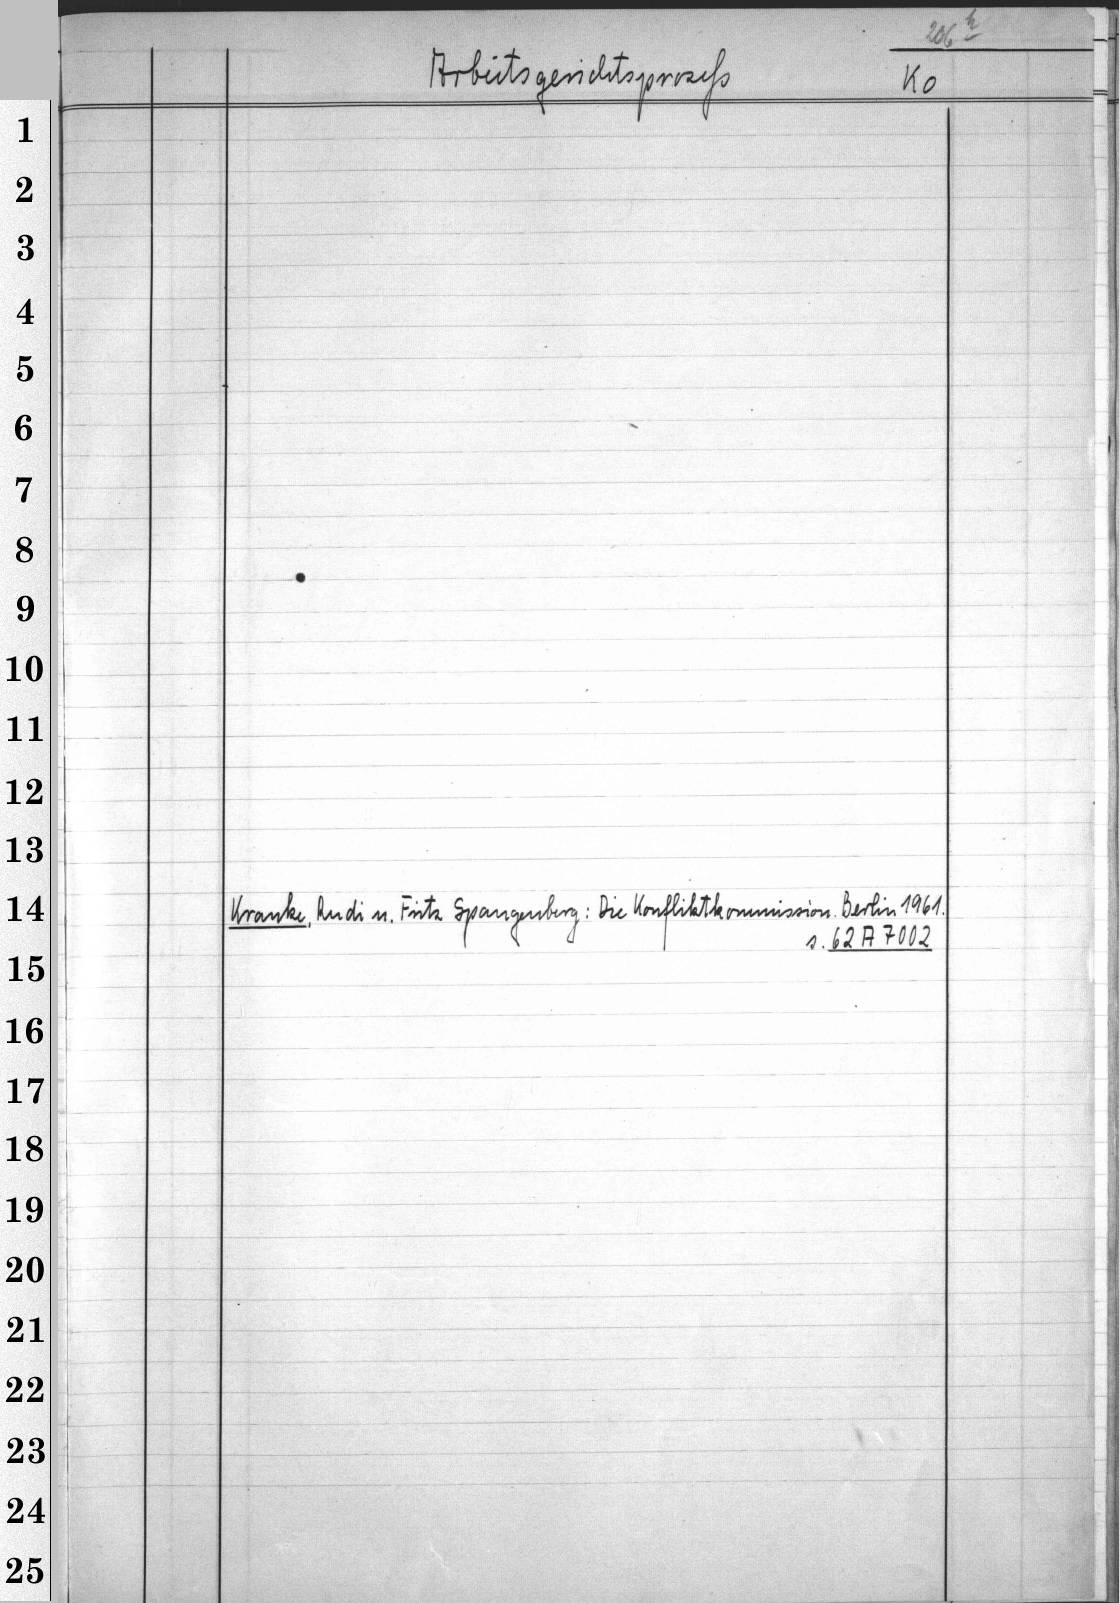 206 h
Arbeitsgerichtsprozeß
Ko
1
2
3
4
5
6
7
8
9
10
11
12
13
14
Kranke, Rudi u. Fritz Spangenberg: Die Konfliktkommission. Berlin 1961.
s. 62 A 7002
15
16
17
18
19
20
21
22
23
24
25